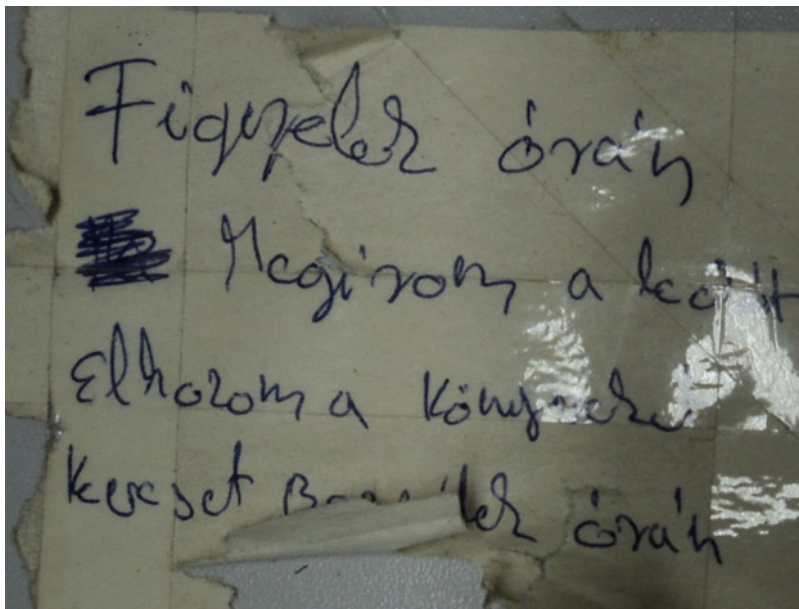 Figyelek órán
Megírom a leckét
Elhozom a könyveke
keveset Beszélek órán